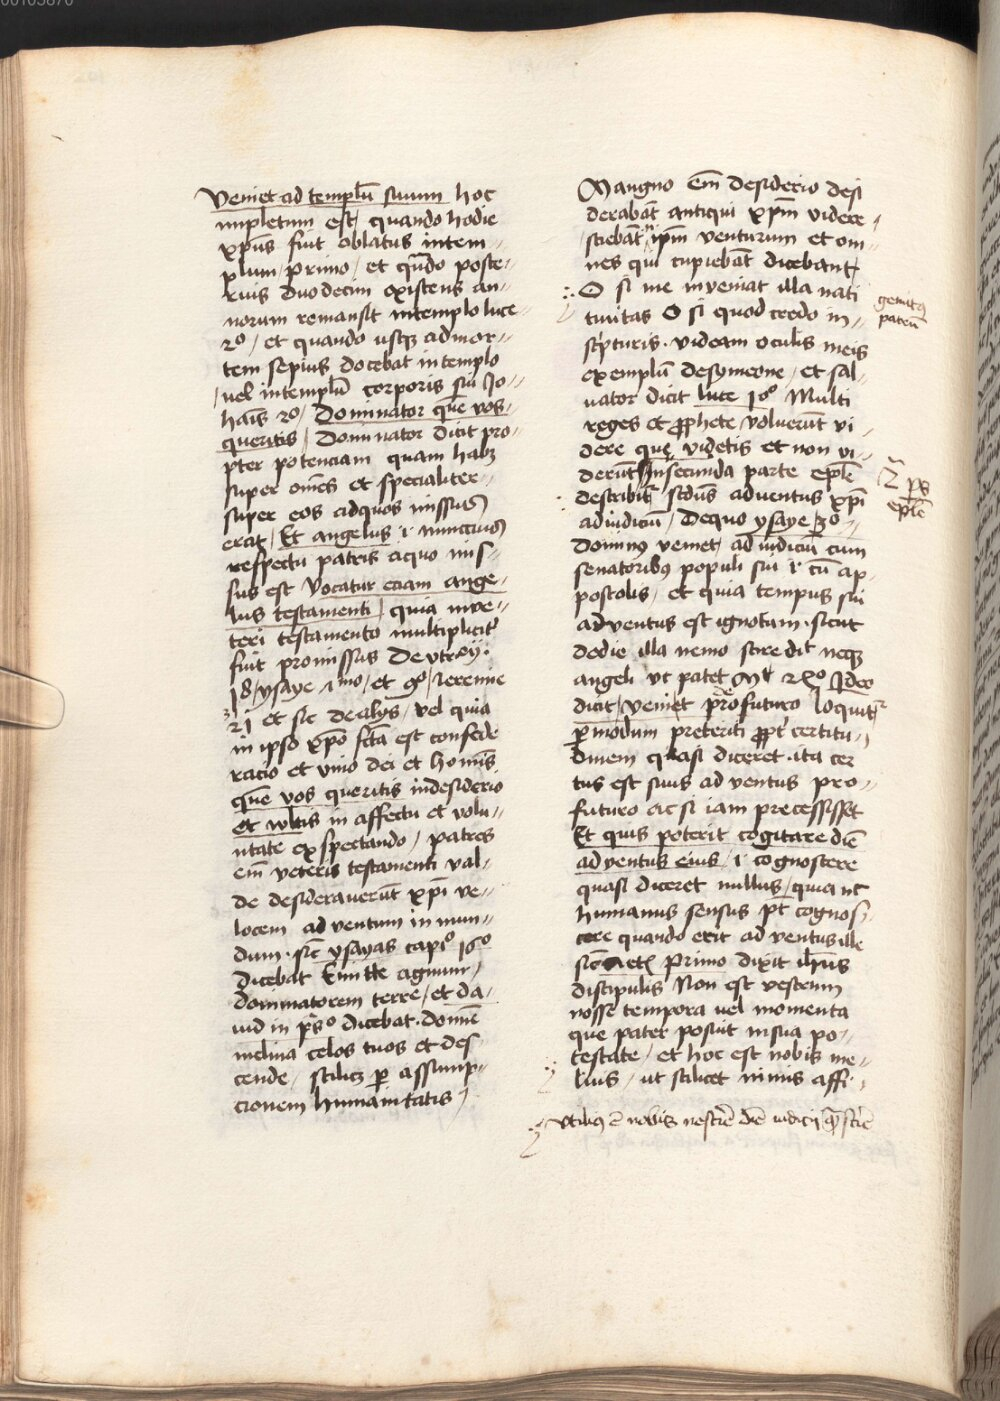 Veniet ad templū suum hoc
impletum est quando hodie
xpūs fuit oblatus in tem-
plum / primo / et qn̄do poste-
rius duodecim existens an-
norum remansit in templo luce
2º / et quando usqꝫ ad mor-
tem sepius docebat in templo
/ vel in templū corporis sui Jo-
hais 2º / Dominator quē vos
queritis / Dominator dicit pro-
pter potenciam quam habꝫ
super omēs et specialiter
super eos ad quos missus
erat / Et angelus .i. nunccius
respectu patris a quo mis-
sus est Vocatur eciam ange-
lus testamenti / quia in ve-
teri testamento multiplicitͬ
fuit promissus Deutroÿ.
18 / ysaye / et 9º / Jeremie
et sic de alijs / vel quia
in ipso xp̄o fc̄ta est confede
racio et vnio dei et hominis
quē vos queritis in desiderio
et wltis in affectu et volu-
ntate exspectando / patres
em̄ veteris testamenti val-
de desiderauerūt xp̄i ve-
locem aduentum in mun-
dum. sic̄ ysayas capiº 16º
dicebat Emitte agnum /
dominatorem terre / et da-
uid in p̄sº dicebat. domiē
inclina celos tuos et des
cende / scilicꝫ ꝑ assump-
cionem humanitatis /
Mangno em̄ desiderio desi
derabāt antiqui xp̄m videre
sciebāt ip̄m venturum et om-
nes qui cupiebāt dicebant
O si me inveniat illa nati
genitꝯ
patrū
uitas O si quod credo in
scripturis. videam oculis meis
exemplū de symeone / et sal-
uator dicit luce 10º Multi
reges et ꝓphete / voluerūt vi-
dere que videtis et non vi-
derūt / In secunda parte eplē
2 ps
eplē
describitͬ scdūs aduentus xp̄i
ad iudiciū / De quo ysaye 3º
Dominꝯ veniet / ad iudiciū cum
senatoribꝯ populi sui .i. cū ap-
postolis / et quia tempus sui
aduentus est ignotum. sicut
de die illa nemo scire dit neqꝫ
angeli vt patet Mͭ 2xº Ideo
dicit / veniet p̄ro futuro loquitͬ
ꝑ modum preteriti ꝓpt certitu-
dinem quasi diceret. ita cer
tus est suus aduentus pro
futuro ac si iam precessisset
Et quis poterit cogitare diē
aduentus eius / .i. cognoscere
quasi diceret nullus / quia nͨ
humanus sensus pͭ cognos-
cere quando erit aduentus ille
Primo dixit ih̄us
discipulis Non est vestrum
nosse tempora vel momenta
que pater posuit in sua po-
testate / et hoc est nobis me-
lius / ut scilicet nimis affi-
vtiliꝯ ē nobis nescire diē iudicij quā scirē